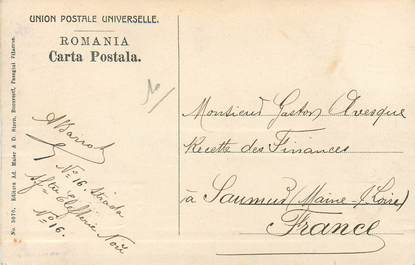 UNION POSTALE UNIVERSELLE.
ROMANIA
Carta Postala.
No. 3070. Editura Ad. Maier & D. Stern, Bucuresci, Pasagiul Villacros.
No 16. Strada
No 16.
Monsieur Gaston Avesque
Recette des Finances
à Saumur (Maine & Loire)
France